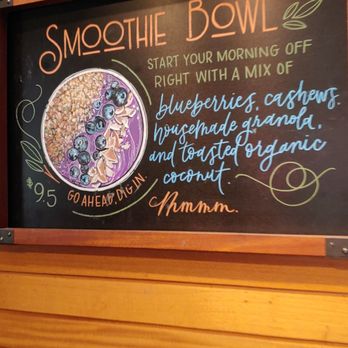 SMOOTHIE BOWL
START YOUR MORNING OFF
RIGHT WITH A MIX OF
blueberries, cashews,
housemade granola,
and toasted organic
coconut.
Mhmmm.
9.5
GO AHEAD, DIG IN.